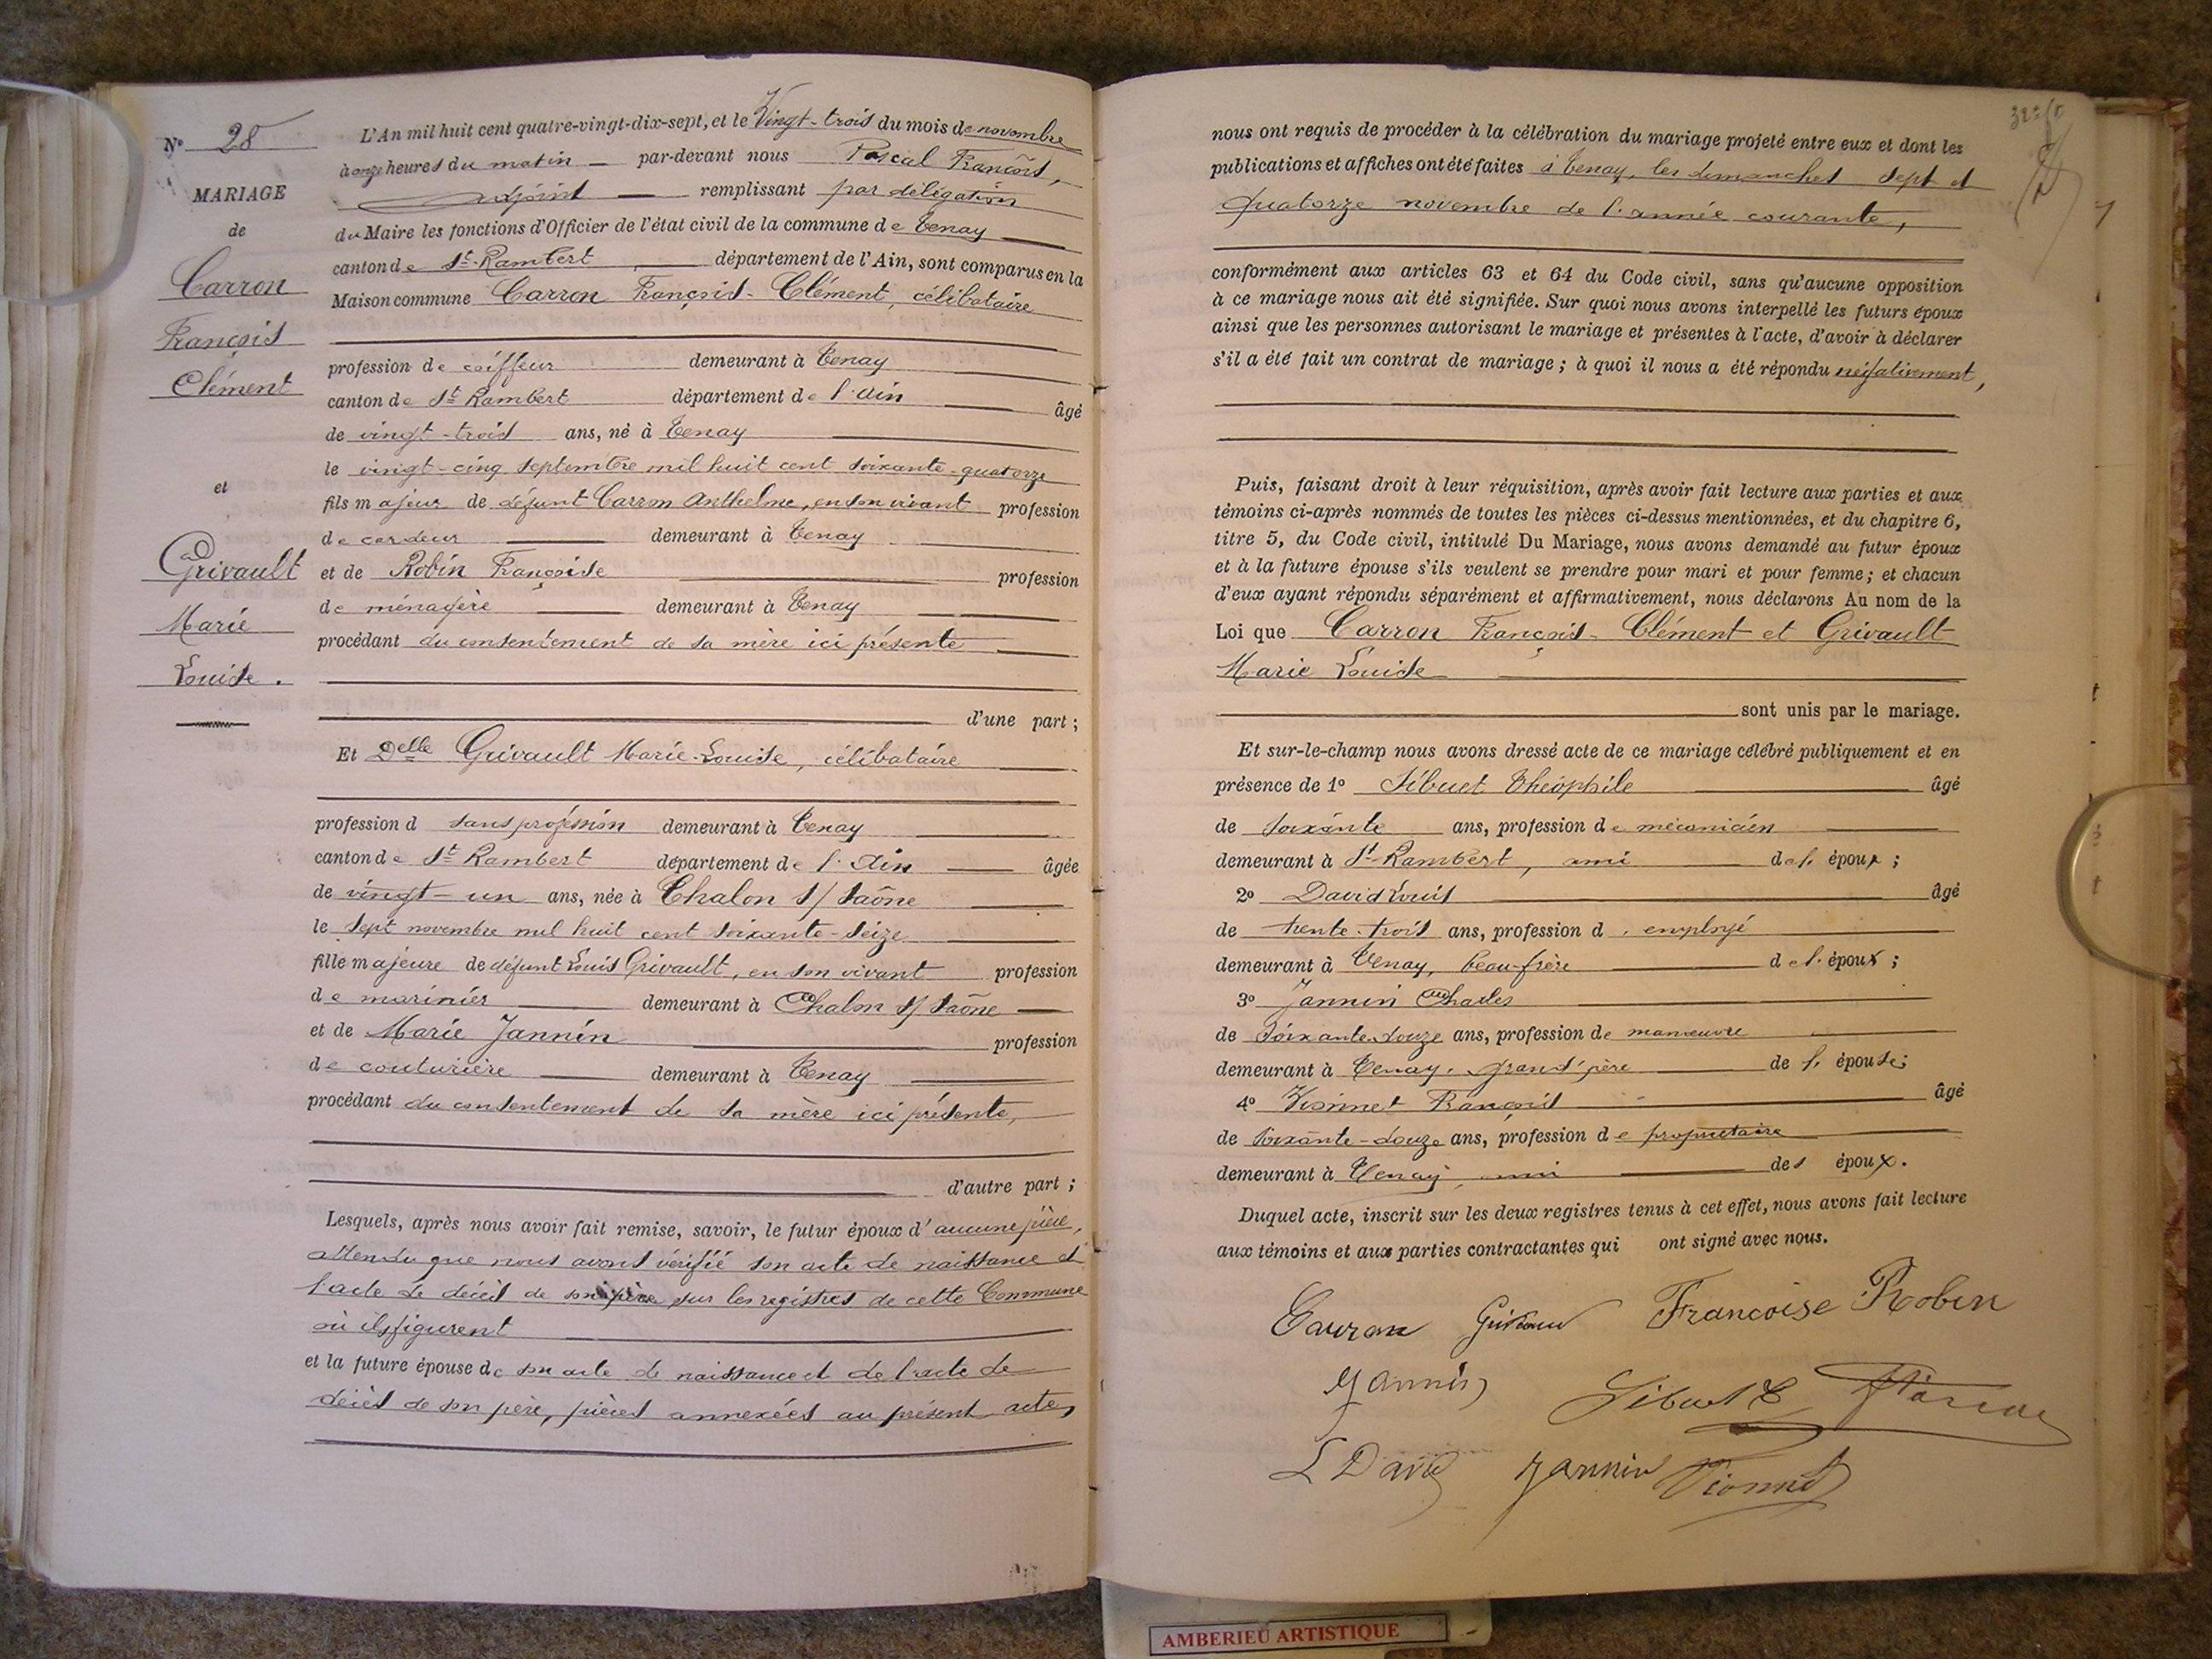 Nº 28
MARIAGE
de
Carron
François
Clément
et
Grivault
Marie
Louise.
L'An mil huit cent quatre-vingt-dix-sept, et le Vingt-trois du mois de novembre
à onze heures du matin — par-devant nous Pascal François,
adjoint — remplissant par délégation
du Maire les fonctions d'Officier de l'état civil de la commune de Tenay
canton de St-Rambert, département de l'Ain, sont comparus en la
Maison commune Carron François-Clément, célibataire
profession de coiffeur demeurant à Tenay
canton de St Rambert département de l'Ain âgé
de vingt-trois ans, né à Tenay
le vingt-cinq septembre mil huit cent soixante-quatorze
fils majeur de défunt Carron Anthelme, en son vivant profession
de cardeur demeurant à Tenay
et de Robin Françoise profession
de ménagère demeurant à Tenay
procédant du consentement de sa mère ici présente
d'une part ;
Et Delle Grivault Marie-Louise, célibataire
profession d sans profession demeurant à Tenay
canton de St Rambert département de l'Ain âgée
de vingt-un ans, née à Chalon s/ Saône
le sept novembre mil huit cent soixante-seize
fille majeure de défunt Louis Grivault, en son vivant profession
de marinier demeurant à Chalon s/ Saône
et de Marie Jannin profession
de couturière demeurant à Tenay
procédant du consentement de sa mère ici présente,
d'autre part ;
Lesquels, après nous avoir fait remise, savoir, le futur époux d'aucune pièce,
attendu que nous avons vérifié son acte de naissance et
l'acte de décès de son père sur les registres de cette Commune
où ils figurent
et la future épouse de son acte de naissance et de l'acte de
décès de son père, pièces annexées au présent acte,
nous ont requis de procéder à la célébration du mariage projeté entre eux et dont les
publications et affiches ont été faites à Tenay, les dimanches sept et
quatorze novembre de l'année courante,
conformément aux articles 63 et 64 du Code civil, sans qu'aucune opposition
à ce mariage nous ait été signifiée. Sur quoi nous avons interpellé les futurs époux
ainsi que les personnes autorisant le mariage et présentes à l'acte, d'avoir à déclarer
s'il a été fait un contrat de mariage ; à quoi il nous a été répondu négativement,
Puis, faisant droit à leur réquisition, après avoir fait lecture aux parties et aux
témoins ci-après nommés de toutes les pièces ci-dessus mentionnées, et du chapitre 6,
titre 5, du Code civil, intitulé Du Mariage, nous avons demandé au futur époux
et à la future épouse s'ils veulent se prendre pour mari et pour femme ; et chacun
d'eux ayant répondu séparément et affirmativement, nous déclarons Au nom de la
Loi que Carron François-Clément et Grivault
Marie Louise
sont unis par le mariage.
Et sur-le-champ nous avons dressé acte de ce mariage célébré publiquement et en
présence de 1º Sibuet Théophile âgé
de soixante ans, profession de mécanicien
demeurant à St-Rambert, ami de l'époux ;
2º David Louis âgé
de trente-trois ans, profession d employé
demeurant à Tenay, beau-frère de l'époux ;
3º Jannin Charles
de soixante-douze ans, profession de manœuvre
demeurant à Tenay, grand'père de l'épouse ;
4º Vionnet François âgé
de soixante-douze ans, profession de propriétaire
demeurant à Tenay, ami des époux.
Duquel acte, inscrit sur les deux registres tenus à cet effet, nous avons fait lecture
aux témoins et aux parties contractantes qui ont signé avec nous.
Carron Françoise Robin
Jannin Sibuet T Pascal
L David Jannin Vionnet
AMBERIEU ARTISTIQUE